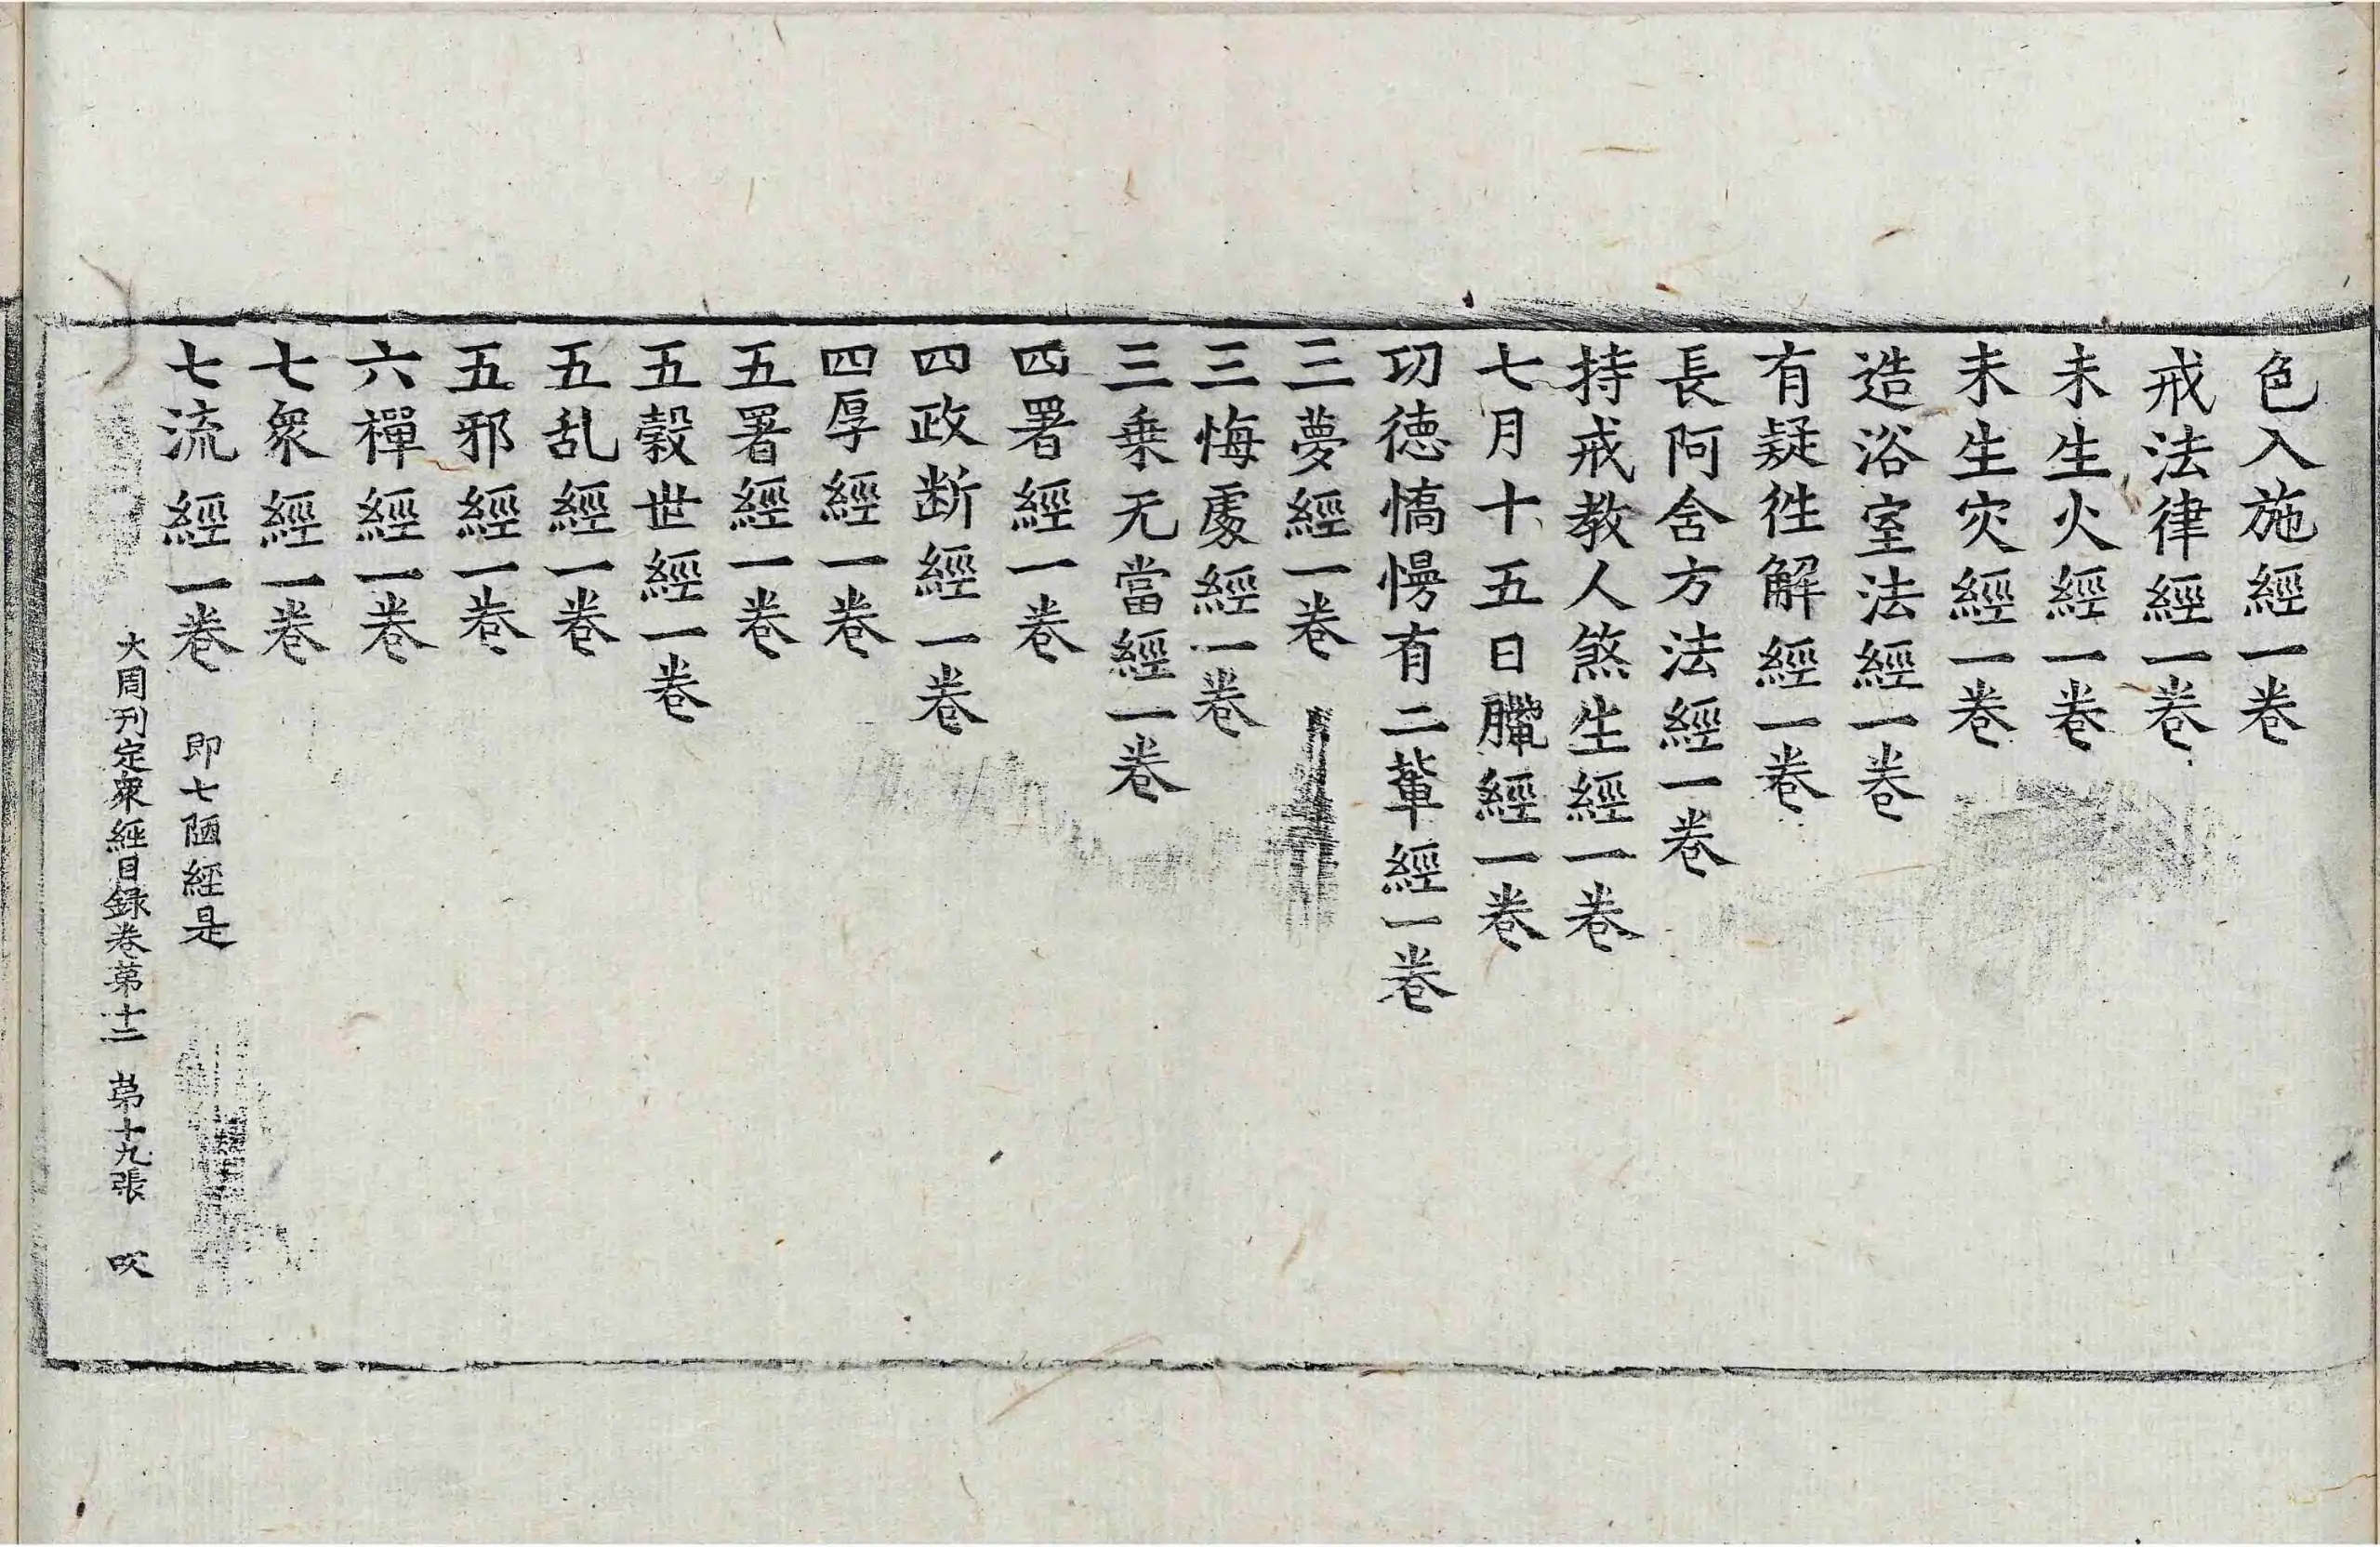 色入施經一卷
戒法律經一卷
未生火經一卷
未生灾經一卷
造浴室法經一卷
有疑徃解經一卷
長阿含方法經一卷
持戒教人煞生經一卷
七月十五日臘經一卷
功徳憍慢有二軰經一卷
三夢經一卷
三悔處經一卷
三乗无當經一卷
四署經一卷
四政断經一卷
四厚經一卷
五署經一卷
五穀世經一卷
五乱經一卷
五邪經一卷
六禪經一卷
七衆經一卷
七流經一卷 即七陋經是
大周刊定衆經目録卷苐十二 苐十九張 吹